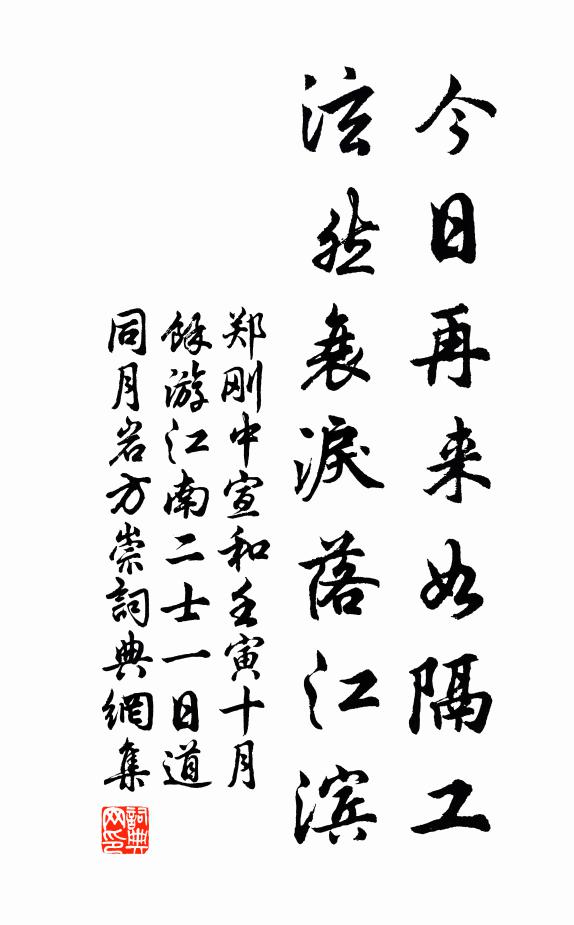 今日再来如隔工
泫然衰淚落江滨
郑刚中宣和壬寅十月
餘游江南二士一日道
同月岩方崇詞典網集
詞典网印